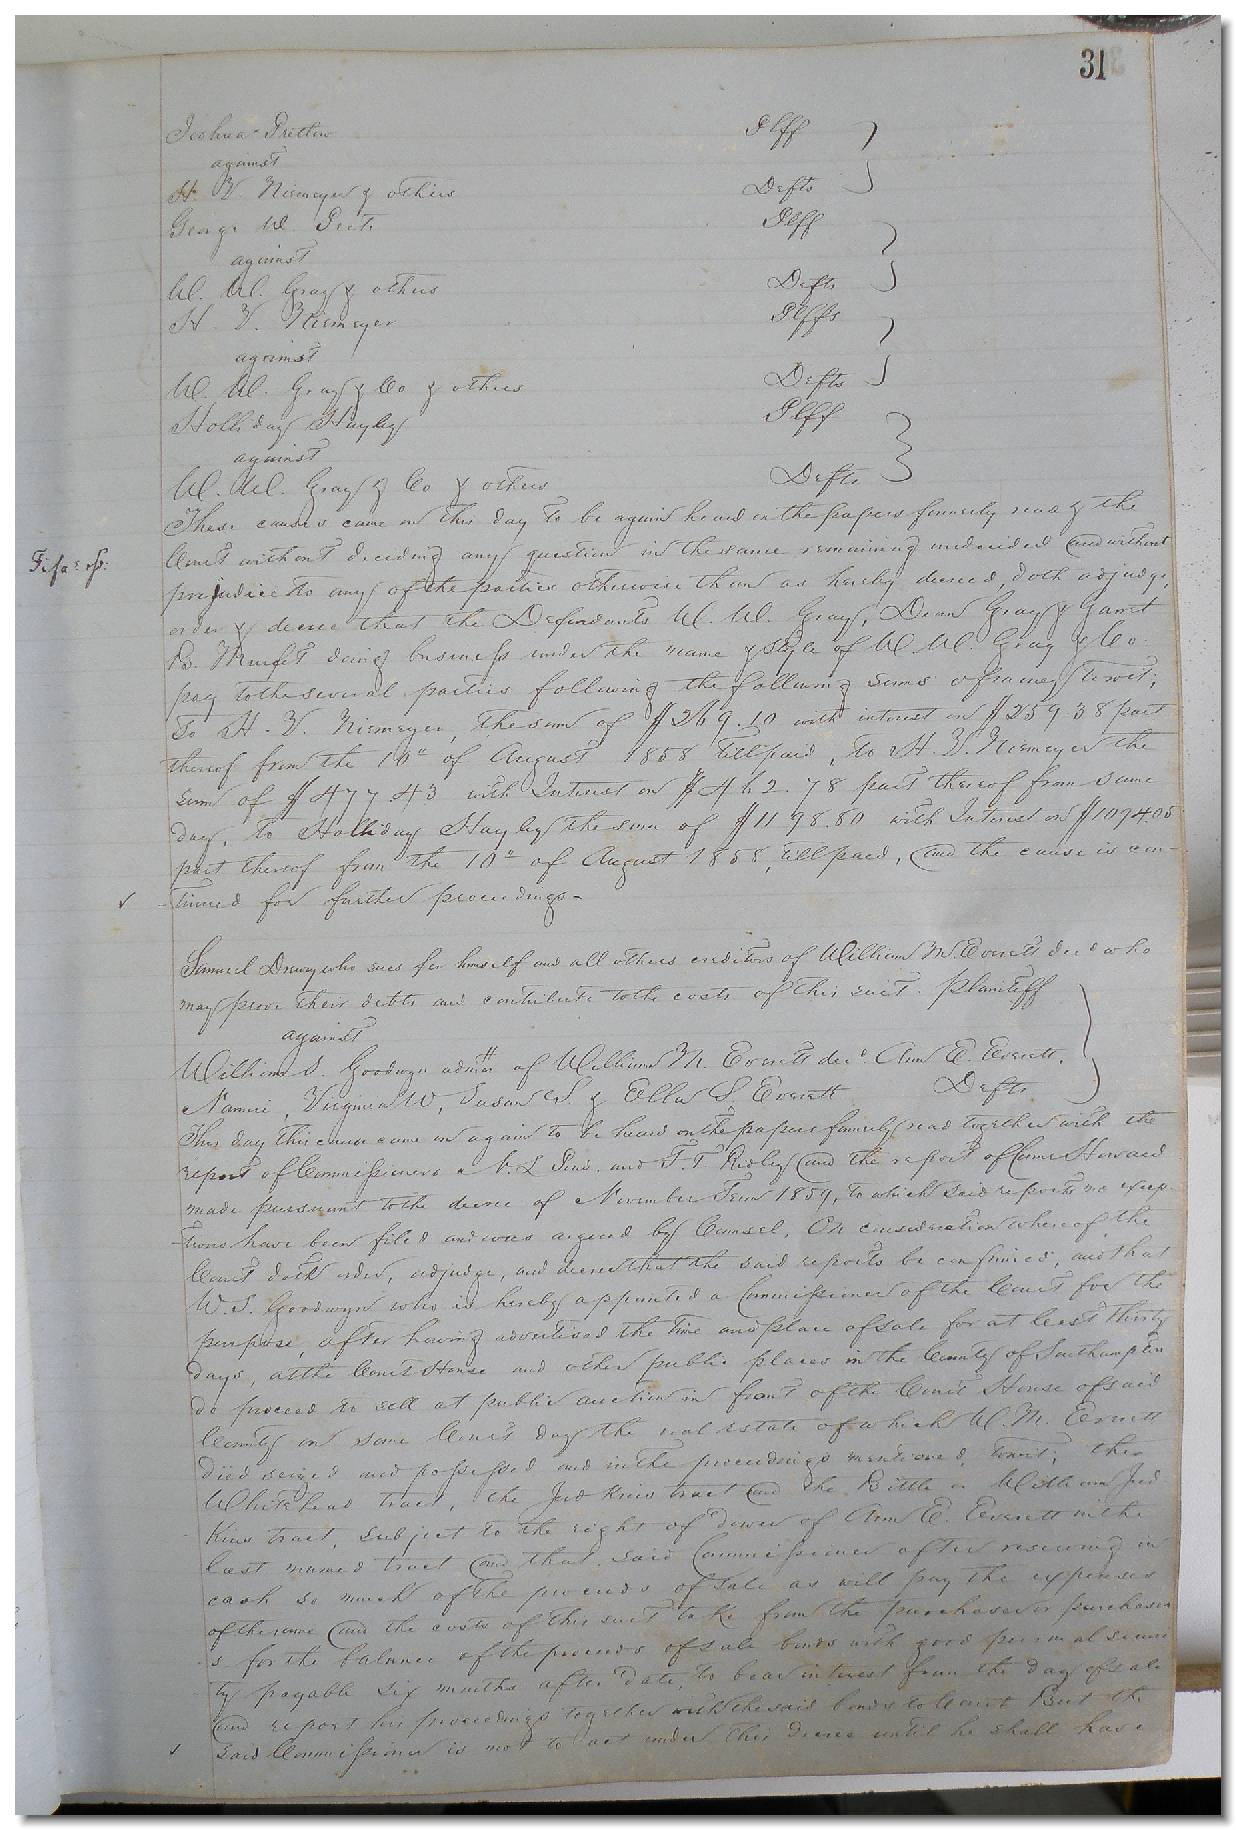 31
Joshua Pretlow Plff
against
H. V. Niemeyer & others Defts
George W. Peete Plff
against
W. W. Gray & others Defts
H. V. Niemeyer Plffs
against
W. W. Gray & Co & others Defts
Holliday Hayley Plff
against
W. W. Gray & Co & others Defts
These causes came on this day to be again heard on the papers formerly read & the
Court without deciding any question in the same remaining undecided and without
Fi fa:
prejudice to any of the parties otherwise than as hereby decreed, doth adjudge,
order & decree that the Defendants W. W. Gray, Dean Gray &
B. doing business under the name & style of W. W. Gray & Co
pay to the several parties following the following sums of money towit;
To H. V. Niemeyer, the sum of $269.10 with interest on $259 38 part
thereof from the 10th of August 1858 till paid, to H. V. Niemeyer the
sum of $477 43 with Interest on $462.78 part thereof from same
day, to Holliday Hayley the sum of $1198.80 with Interest on $1094.05
part thereof from the 10th of August 1858, till paid, and the cause is con-
-tinued for further proceedings-
Samuel Drewry who sues for himself and all others creditors of William M. Everett decd who
may prove their debts and contribute to the costs of this suit. Plaintiff
against
William S. Goodwyn admr of William M. Everett decd. Ann E. Everett,
Nannie, Virginia W, Susan S. & Ella S. Everett Defts
This day this cause came on again to be heard on the papers formerly read together with the
report of Commissioners and T. T Ridley and the report of Comr Howard
made pursuant to the decree of November Term 1859, to which said reports no excep-
-tions have been filed and was argued by Counsel. On consideration whereof the
Court doth order, adjudge, and decree that the said reports be confirmed, and that
W. S. Goodwyn who is hereby appointed a Commissioner of the Court for the
purpose, after having advertised the time and place of sale for at least thirty
days, at the Court House and other public places in the County of Southampton
do proceed to sell at public auction in front of the Court House of said
County on some Court day the real estate of which W. M. Everett
died seized and possessed and in the proceedings mentioned, towit; the
Whitehead tract, the Jud Kins tract and the Bittle or William Jud
Kins tract, subject to the right of dower of Ann E. Everett in the
last named tract and that said Commissioner after reserving in
cash so much of the proceeds of sale as will pay the expenses
of the same and the costs of this suit take from the purchaser or purchaser
s for the balance of the proceeds of sale bonds with good personal securi
ty payable six months after date, to bear interest from the day of sale
and report his proceedings together with the said bonds to Court But the
said Commissioner is not to act under this decree until he shall have